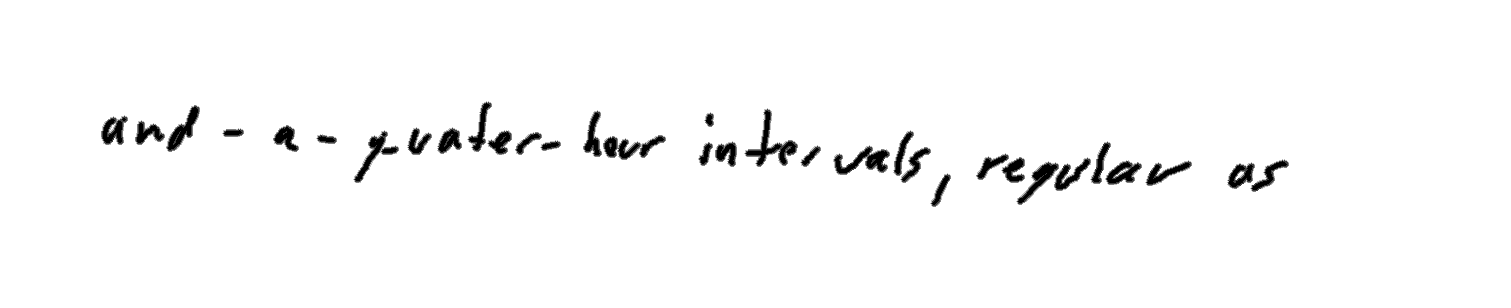 and-a-quater-hour intervals, regular as